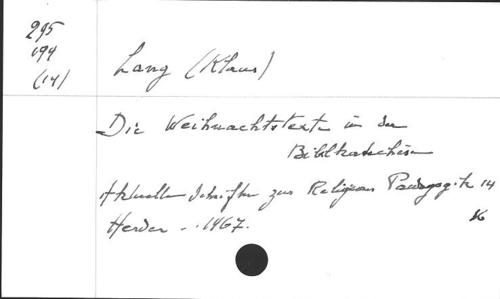 295
194
(14)
Lang (Klaus)
Die Weihnachtstexte in der
Bibelkatechese
Aktuelle Schriften zur Religions Pädagogik 14
Herder .. 1967.